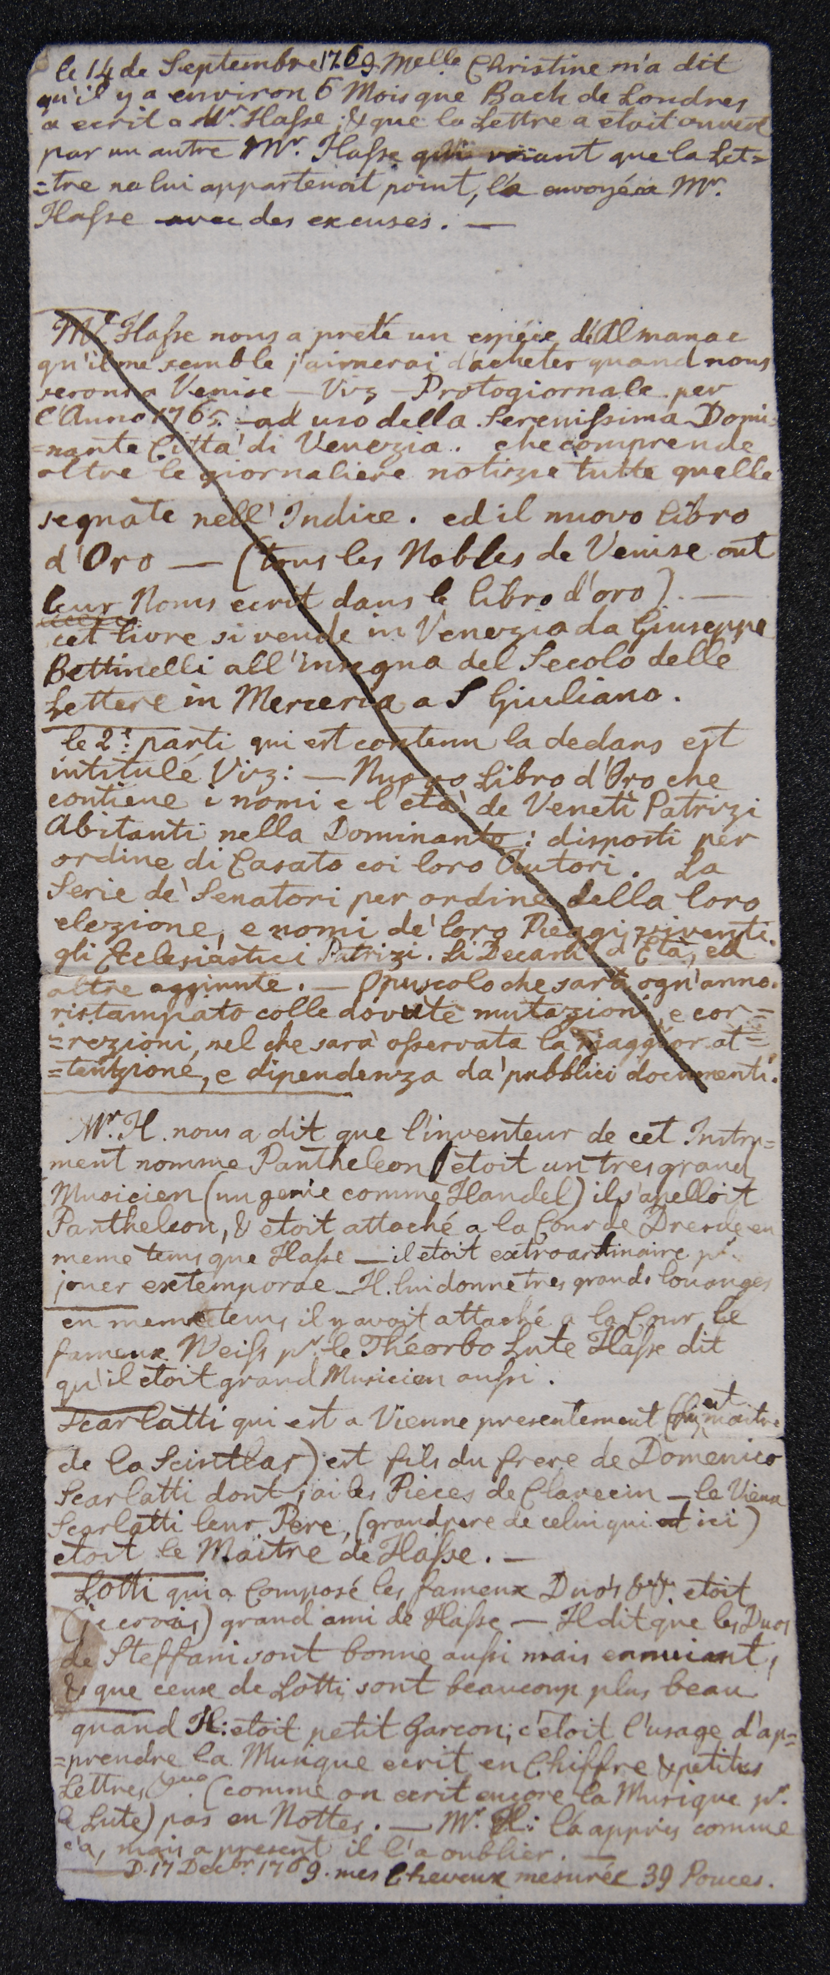 le 14 de Septembre 1769 Melle Christine m'a dit
qu'il y a environ 6 Mois que Bach de Londres
a ecrit a Mr. Hasse; & que la Lettre a etoit ouvert
par un autre Mr. Hasse qui voiant que la Let=
=tre ne lui appartenoit point, l'a envoyé a Mr.
Hasse avec des excuses. —
Mr. Hasse nous a preté un espéce d'Almanac
qu'il me semble j'aimerai d'acheter quand nous
serons a Venise — Viz — Protogiornale per
l'Anno 1765 - ad uso della Serenissima Domi=
=nante Citta' di Venezia. che comprende
oltre le giornaliere notizie tutte quelle
segnate nell' Indice. ed il nuovo libro
d'Oro — (tous les Nobles de Venise ont
leur Noms ecrit dans le libro d'oro). —
cet livre si vende in Venezia da Giuseppe
Bettinelli all' insegna del Secolo delle
Lettere in Merceria a S Giuliano.
le 2d: parti qui est contenu la dedans est
intitulé Viz: — Nuovo Libro d'Oro che
contiene i nomi e l'età de Veneti Patrizi
Abitanti nella Dominante: disposti per
ordine di Casato coi loro Autori. La
Serie de' Senatori per ordine della loro
elezione, e nomi de' loro Pieggi viventi.
gli Ecclesiastici Patrizi. Li Decani d'Età, ed
altre aggiunte. — Opuscolo che sarà ogn'anno.
ristampato colle dovute mutazioni, e cor=
=rezioni, nel che sarà osservata la maggior at=
=tentzione, e dipendenza da' pubblici documenti.
Mr. H. nous a dit que l'inventeur de cet Instru=
ment nomme Pantheleon etoit un tres grand
Musicien (un genie comme Handel) il s'apelloit
Pantheleon, & etoit attaché a la Cour de Dresde en
meme tems que Hasse — il etoit extroardinaire pr.
jouer extemporae — H. lui donne tres grands louanges
en meme tems il y avoit attaché a la Cour le
fameux Weiss pr. le Théorbo Lute Hasse dit
qu'il etoit grand Musicien aussi.
Scarlatti qui est a Vienne presentement (qui est maitre
de la Scintlas) est fils du frere de Domenico
Scarlatti dont j'ai les Pieces de Clavecin — le Vieux
Scarlatti leur Pere, (grandpere de celui qui est ici)
etoit le Maitre de Hasse. —
Lotti qui a Composé les fameux Duo's etoit
(je crois) grand ami de Hasse — H dit que les Duos
de Steffani sont bonne aussi mais ennuiant,
& que ceux de Lotti sont beaucoup plus beau
quand H: etoit petit Garcon; c'etoit l'usage d'ap=
=prendre la Musique ecrit en Chiffre & petites
Lettres (comme on ecrit encore la Musique pr.
le Lute) pas en Nottes. — Mr. H: l'a appris comme
ca, mais a present il l'a oublier. —
D. 17 Decbr. 1769. mes Cheveux mesurée 39 Pouces.